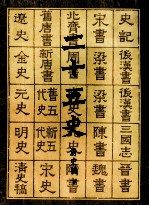 二十五史
史記
後漢書
三國志
晉書
宋書
梁書
陳書
魏書
北齊書
周書
舊唐書
新唐書
舊五代史
新五代史
宋史
遼史
金史
元史
明史
清史稿